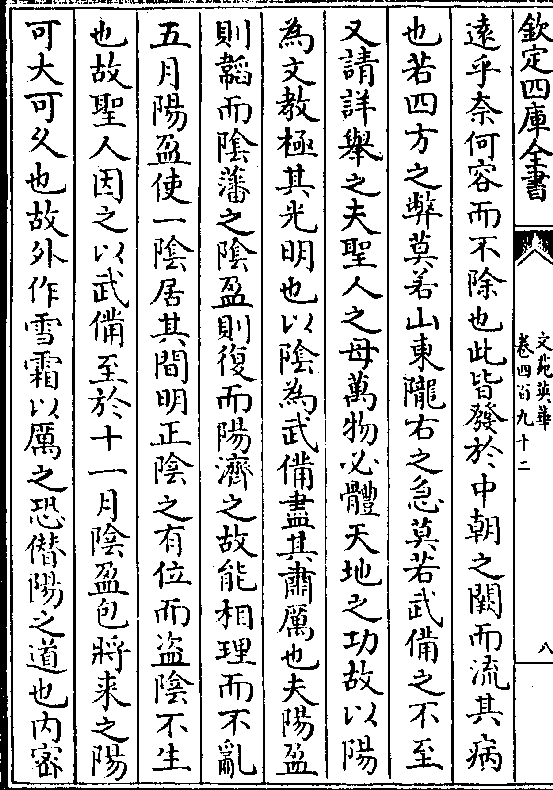 欽定四庫全書
文苑英華
卷四百九十二
八
遠乎奈何容而不除也此皆發於中朝之闕而流其病
也若四方之弊莫若山東隴右之急莫若武備之不至
又請詳舉之夫聖人之母萬物必體天地之功故以陽
為文教極其光明也以陰為武備盡其肅厲也夫陽盈
則韜而陰藩之陰盈則復而陽濟之故能相理而不亂
五月陽盈使一陰居其間明正陰之有位而盜陰不生
也故聖人因之以武備至於十一月陰盈包將來之陽
可大可久也故外作雪霜以厲之恐僣陽之道也內密